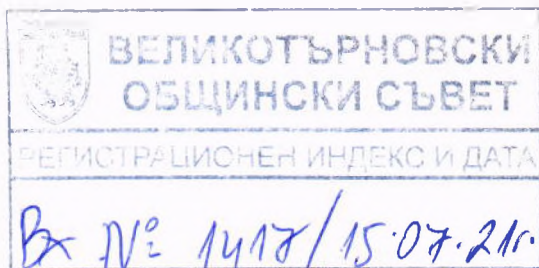 ВЕЛИКОТЪРНОВСКИ
ОБЩИНСКИ СЪВЕТ
РЕГИСТРАЦИОНЕН ИНДЕКС И ДАТА
Вх № 1417/15.07.21г.